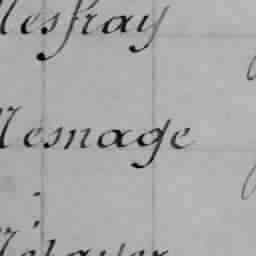 Mesfray
Mesnage